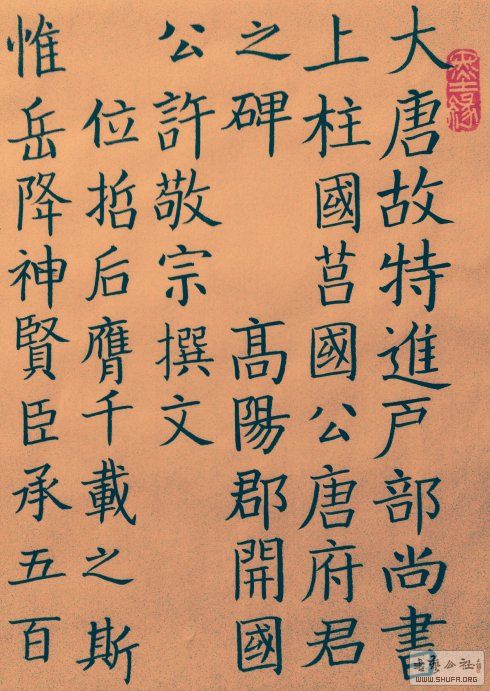 大唐故特進戸部尚書
上柱國莒國公唐府君
之碑 髙陽郡開國
公許敬宗撰文
位哲后膺千載之斯
惟岳降神賢臣承五百
书艺公社
WWW.SHUFA.ORG